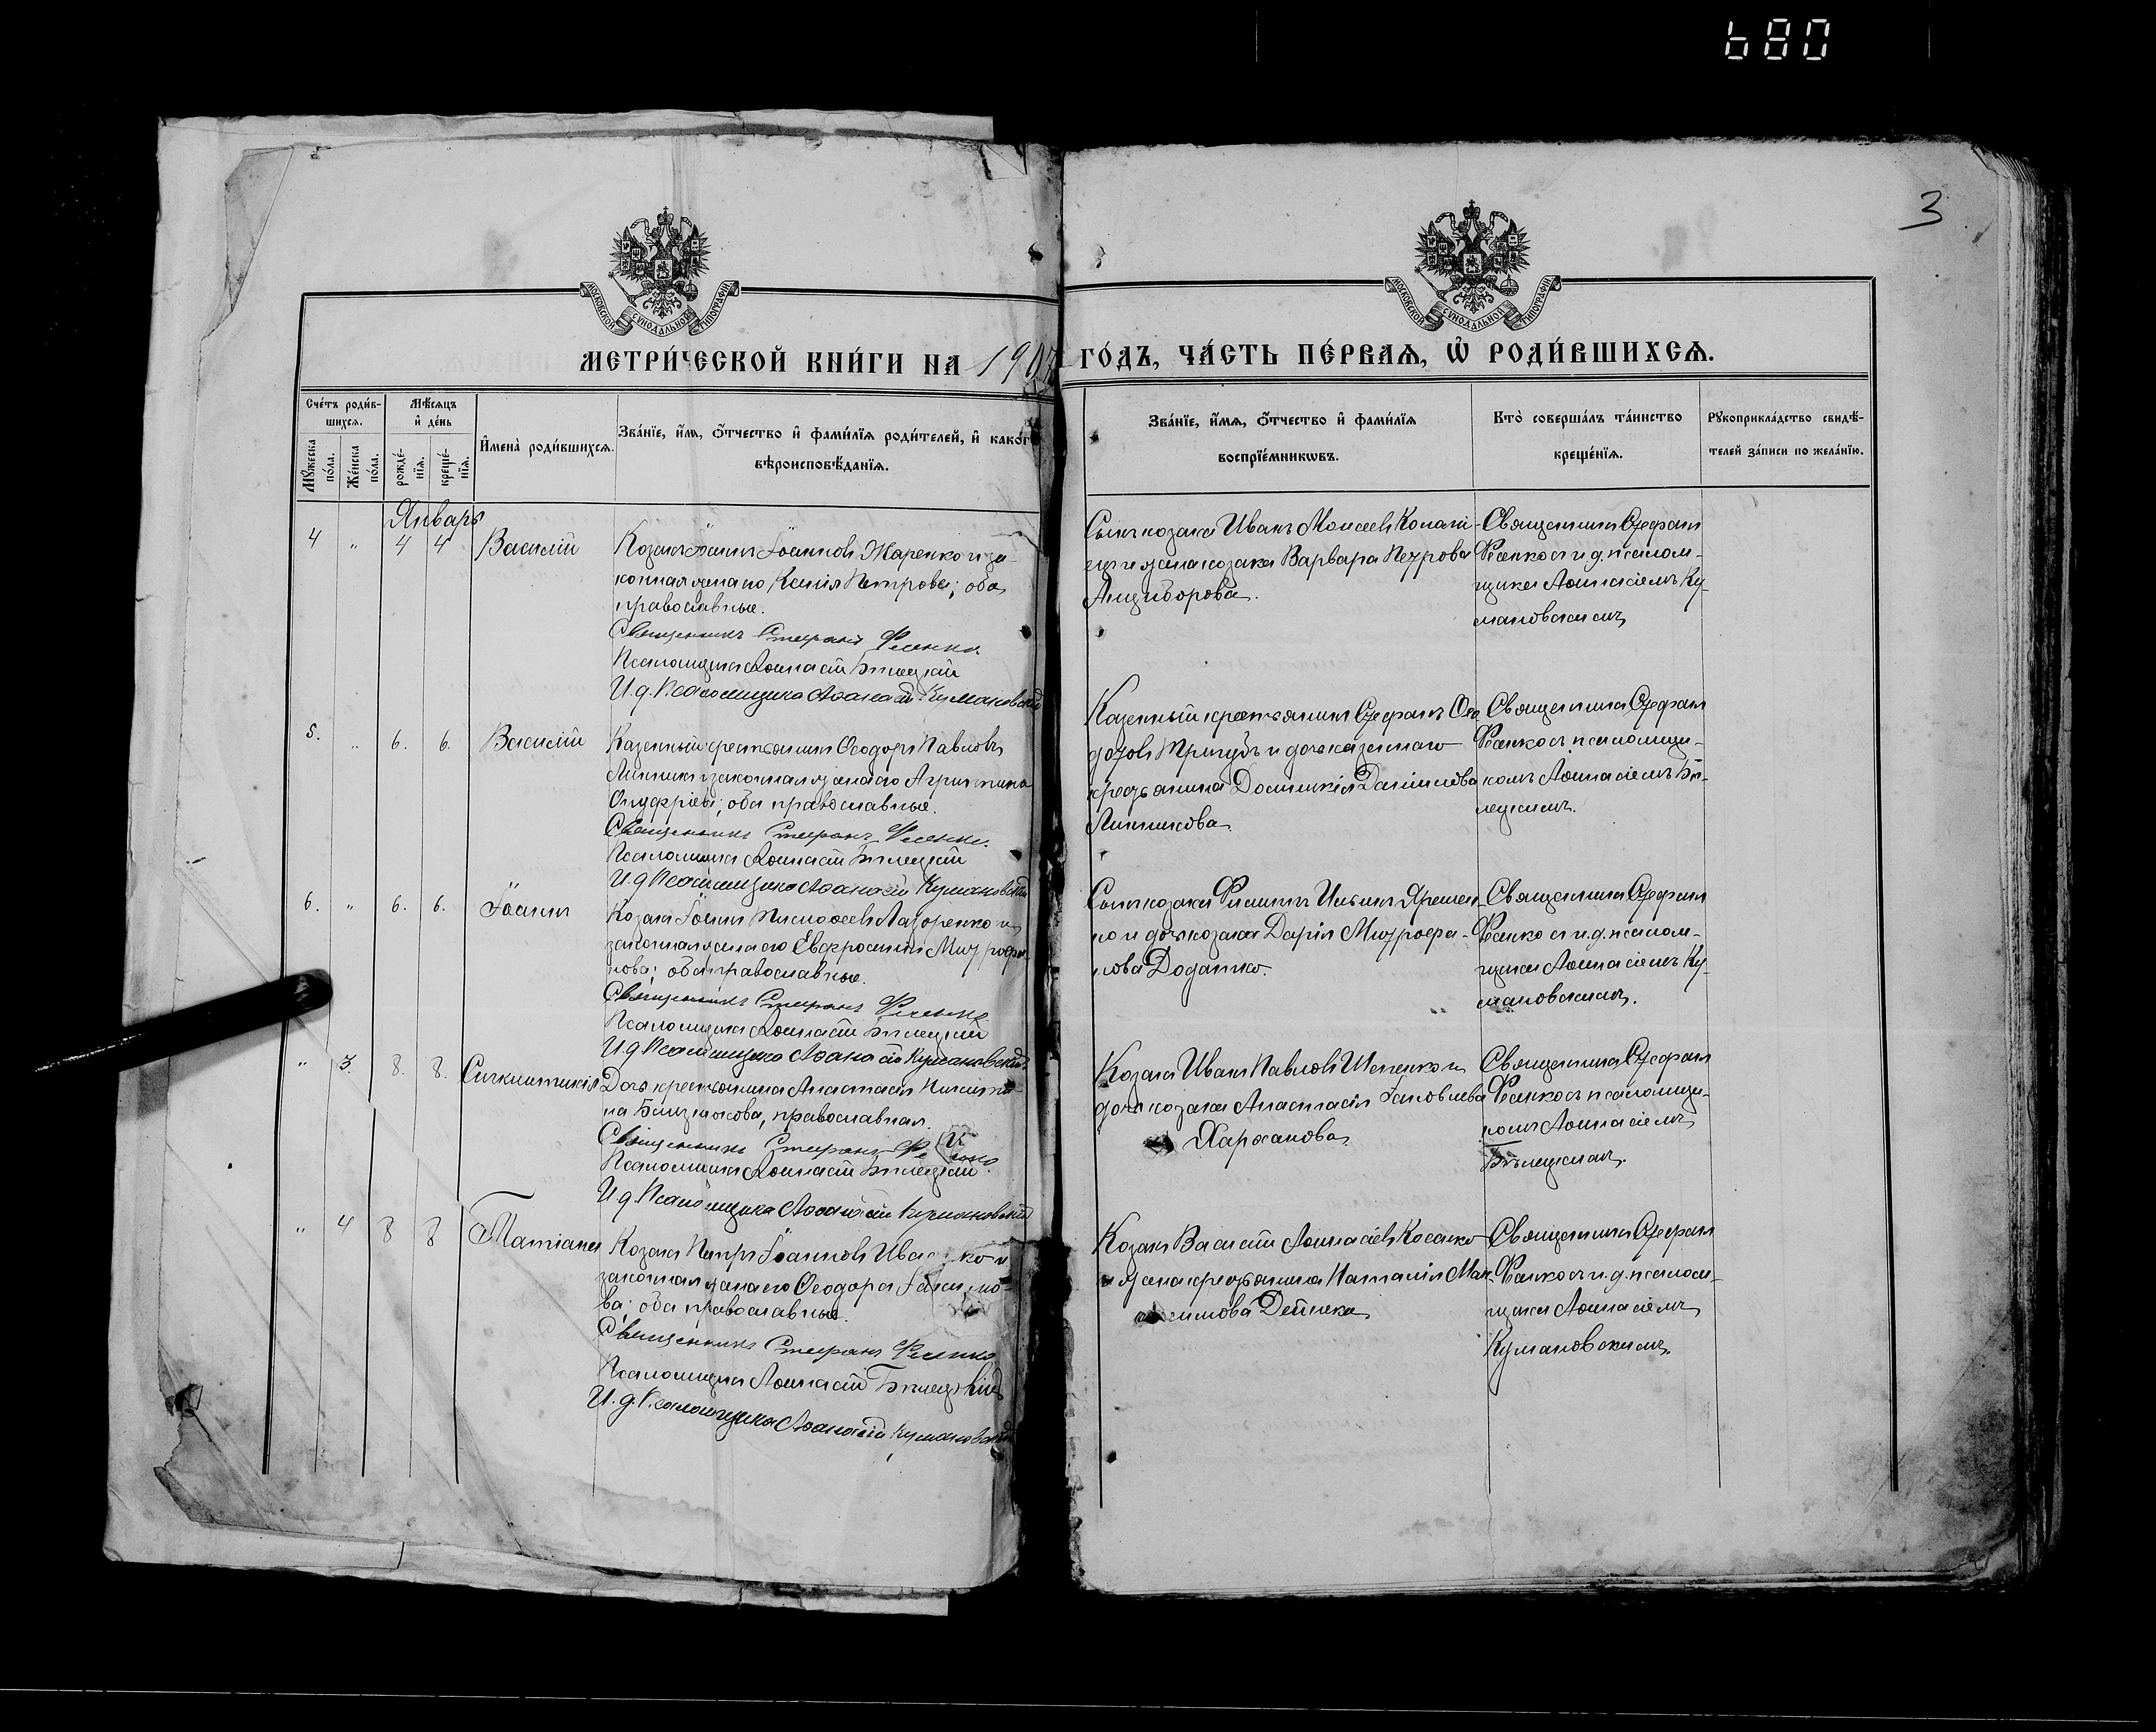 680
3
МОСКОВСКОЙ СѴНОДАЛЬНОЙ ТИПОГРАФІИ
МОСКОВСКОЙ СѴНОДАЛЬНОЙ ТИПОГРАФІИ
МЕТРИ́ЧЕСКОЙ КНИ́ГИ НА 1907
ГО́ДЪ, ЧА́СТЬ ПЕ́РВАѦ, Ѡ҆ РОДИ́ВШИХСѦ.
Сче́тъ роди́в-
шихсѧ.
Мꙋ́жеска по́ла.
Же́нска по́ла.
Мѣ́сѧцъ
и҆ де́нь
рожде́-
нїѧ.
креще́-
нїѧ.
И҆мена̀ роди́вшихсѧ.
Зва́нїе, и҆́мѧ, ѻ҆́тчество и҆ фами́лїѧ роди́телей, и҆ како́г
вѣроисповѣ́данїѧ.
Зва́нїе, и҆́мѧ, ѻ҆́тчество и҆ фами́лїѧ
воспрїе́мникѡвъ.
Кто̀ соверша́лъ та́инство
креще́нїѧ.
Рꙋкоприкла́дство свидѣ́-
телей за́писи по жела́нїю.
Январь
4 " 4 4 Василій
Козакъ Іоаннъ Іоанновъ Жаренко и за-
конная жена его Ксенія Петрова; оба
православные.
Священникъ Стефанъ
Псаломщикъ Аѳанасій Бѣлецкій
И.д. Псаломщика Аѳанасій Кумановскій
Сынъ козака Иванъ Моисеевъ
и жена козака Варвара Петрова
Священникъ Стефанъ
и.д. псалом-
щика Аѳанасіемъ Ку-
мановскимъ
5. " 6. 6. Василій
Казенный крестьянинъ Ѳеодоръ Павловъ
Линникъ и законная жена его Агриппина
Онуфріева; оба православные.
Священникъ Стефанъ
Псаломщикъ Аѳанасій Бѣлецкій
И.д. Псаломщика Аѳанасій Кумановскій
Казенный крестьянинъ Стефанъ Ѳео-
дотовъ и дочь казеннаго
крестьянина Домникія Даніилова
Линникова.
Священникъ Стефанъ
псаломщи-
комъ Аѳанасіемъ Бѣ-
лецкимъ.
6. " 6. 6. Іоаннъ
Козакъ Іоаннъ Тимоѳеевъ Лазоренко и
законная жена его Евфросинія Митрофа-
нова; оба православные.
Священникъ Стефанъ
Псаломщикъ Аѳанасій Бѣлецкій
И.д. Псаломщика Аѳанасій Кумановскій
Сынъ козака Филиппъ Ильинъ Яремен-
ко и дочь козака Дарія Митрофа-
нова Додатко.
Священникъ Стефанъ
и.д. псалом-
щика Аѳанасіемъ Ку-
мановскимъ.
" 3. 8. 8. Синклитикія
Дочь крестьянина Анастасія
Близнюкова, православная.
Священникъ Стефанъ
Псаломщикъ Аѳанасій Бѣлецкій
И.д. Псаломщика Аѳанасій Кумановскій
Козакъ Иванъ Павловъ и
дочь козака Анастасія Іаковлева
Священникъ Стефанъ
псаломщи-
комъ Аѳанасіемъ
Бѣлецкимъ.
" 4 8 8 Татіана
Козакъ Петръ Іоанновъ и
законная жена его Ѳеодора
ва; оба православные.
Священникъ Стефанъ
Псаломщикъ Аѳанасій Бѣлецкій
И.д. Псаломщика Аѳанасій Кумановскій
Козакъ Василій Аѳанасіевъ Косенко
и жена крестьянина Наталія Мак-
симова Дейнека
Священникъ Стефанъ
и.д. псалом-
щика Аѳанасіемъ
Кумановскимъ.